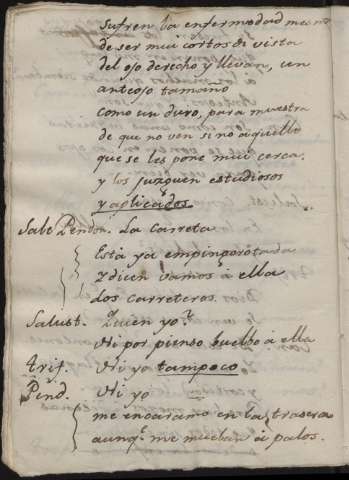 Sufren la enfermedad menos
de ser mui cortos de vista
del ojo derecho y llevan, un
anteojo tamaño
como un duro, para muestra
de que no ven si no aquello
que se les pone mui cerca.
y los juzguen estudiosos
y aplicados.
Sale Pendon. La carreta
Está ya empinporotada
y dicen vamos á ella
dos carreteros.
Salust. Quien yo?
Ni por pienso buelbo á ella
Arif. Ni yo tampoco
Pend. Ni yo
me encaramo en la trasera
aunq.e me muelan á palos.